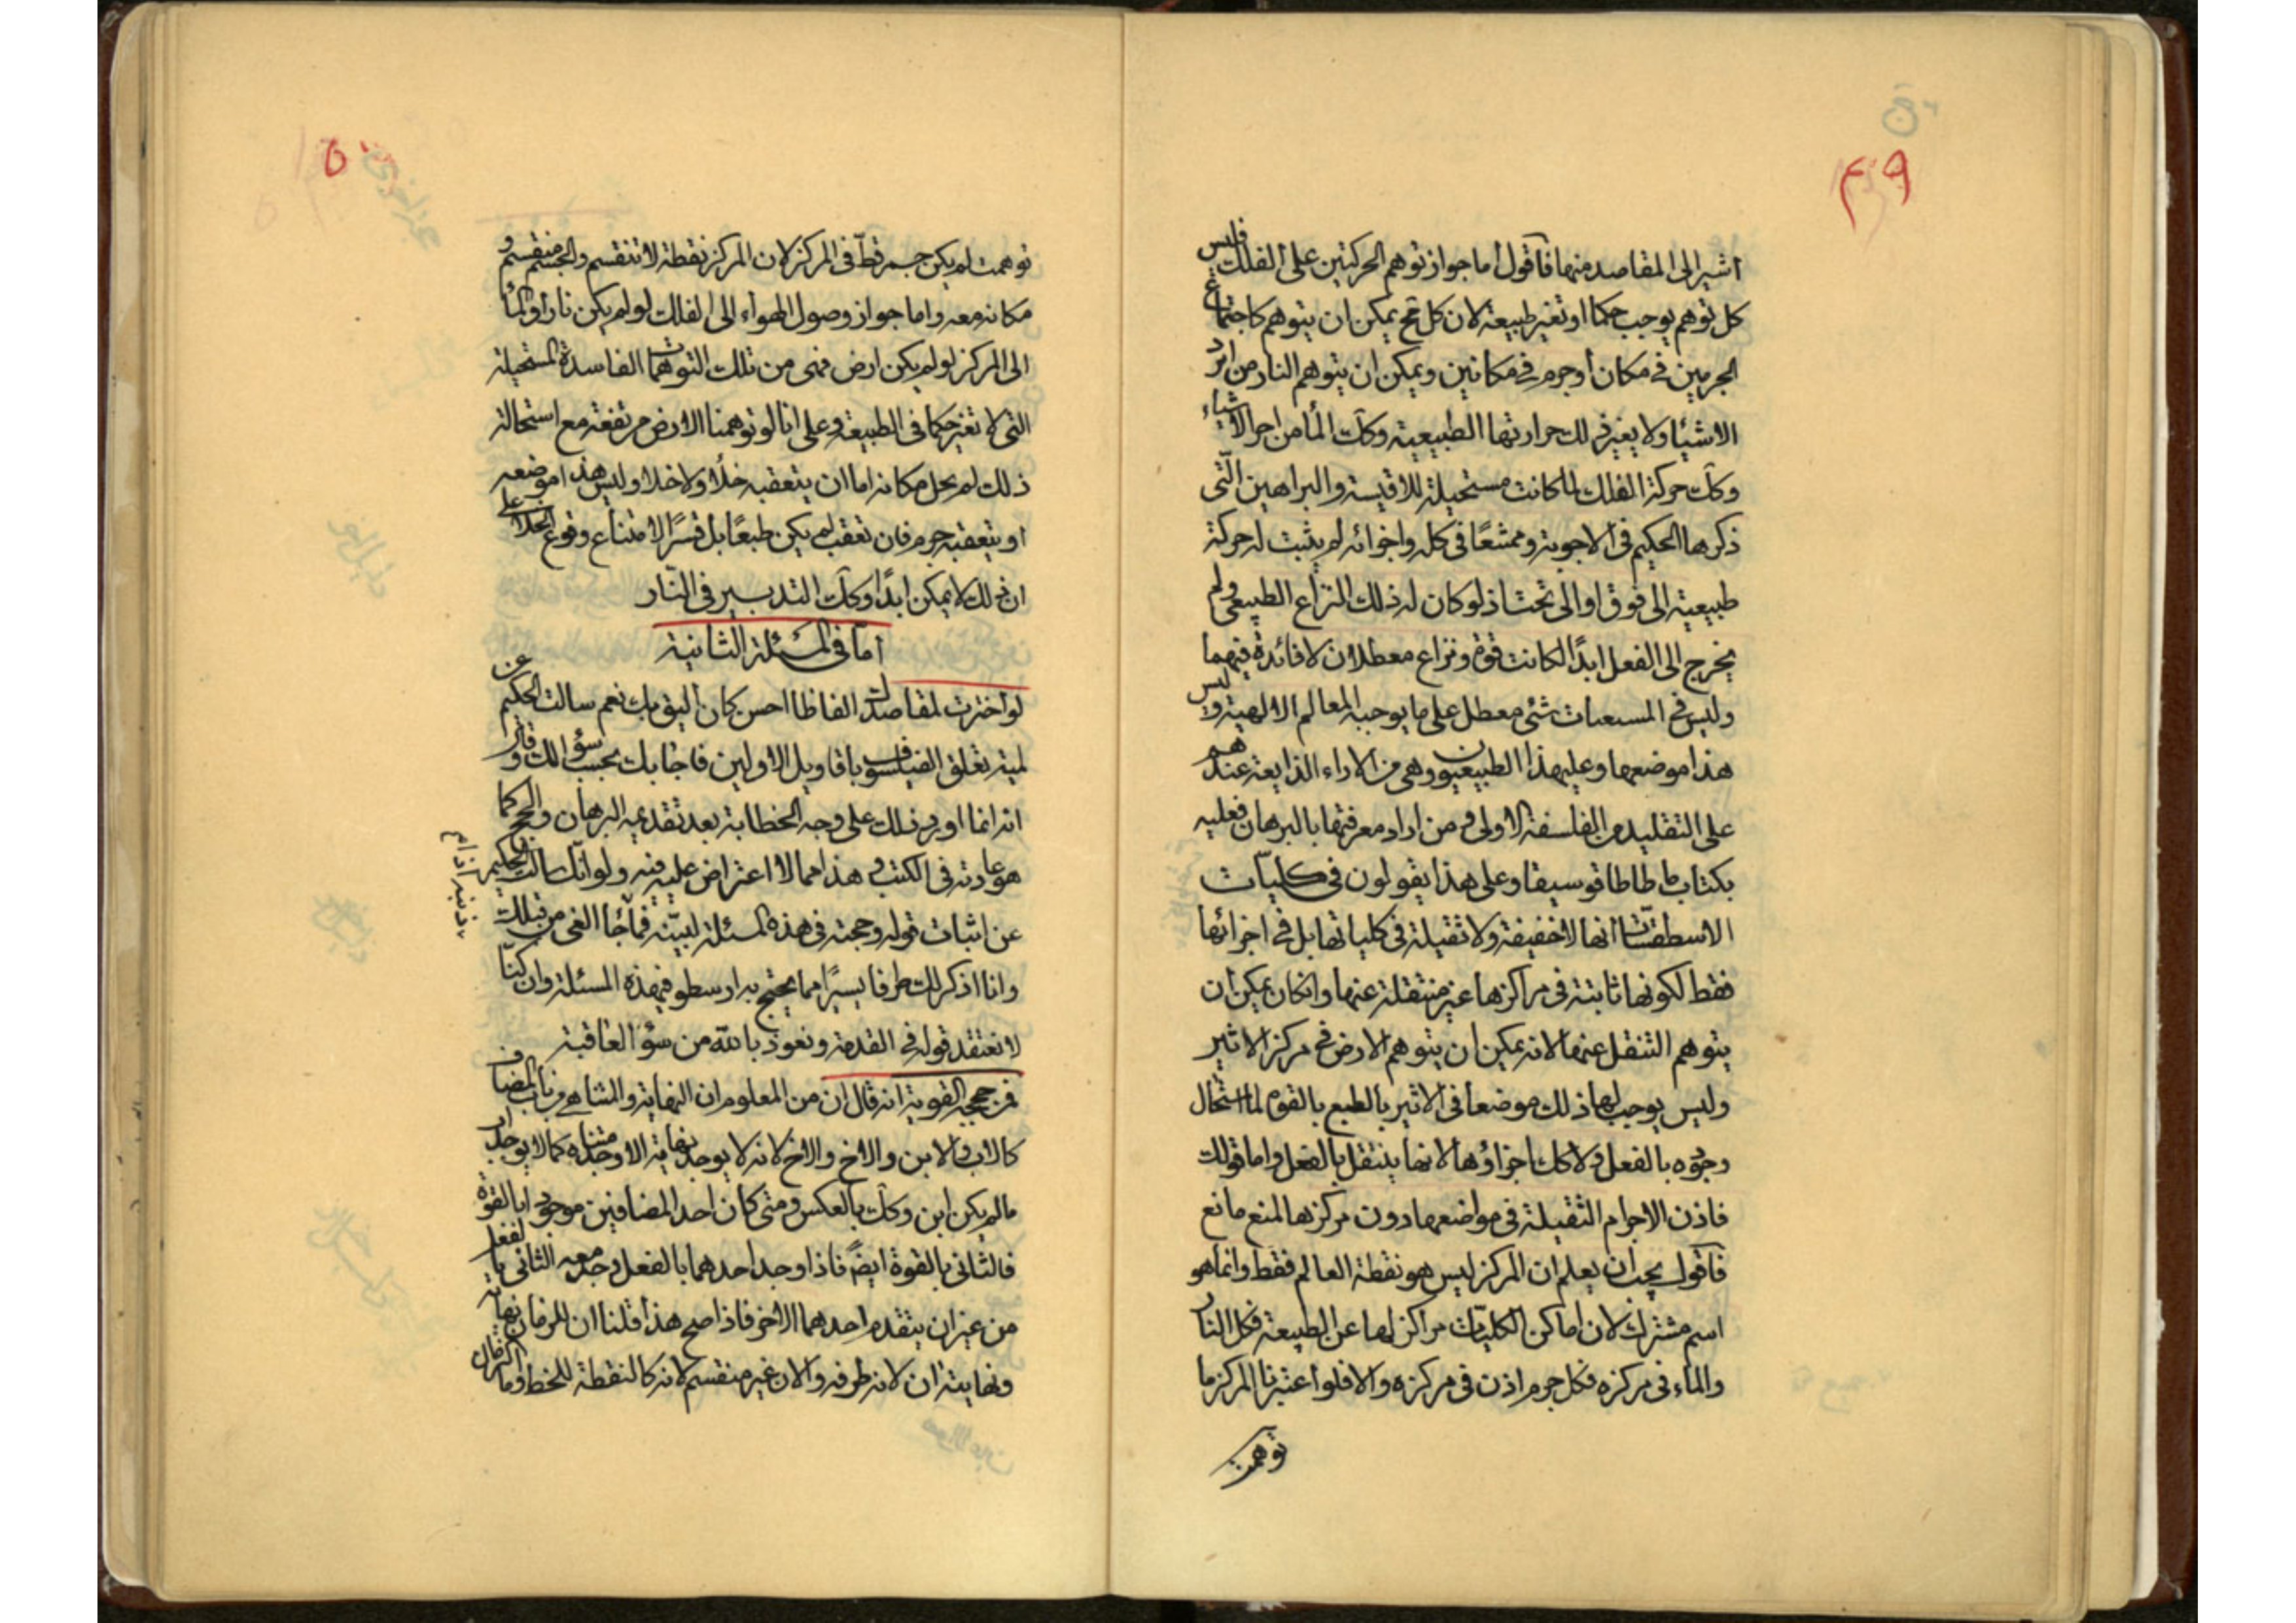 ۴۹
اشير الى المقاصد منها فاقول اما جواز توهم الحركتين على الفلك فليس
كل توهم يوجب حكما او تغير طبيعة لان كل مح يمكن ان يتوهم كاجتماع
الجرمين في مكان او جرم في مكانين ويمكن ان يتوهم النار من ابرد
الاشيا ولا يغير ذلك حرارتها الطبيعية وكك الما من احر الاشياء
وكك حركة الفلك لما كانت مستحيلة للاقيسة والبراهين التي
ذكرها الحكيم في الاجوبة وممتنعا في كله واجزائه لم يثبت له حركة
طبيعية الى فوق او الى تحت اذ لو كان له ذلك النزاع الطبيعي ولم
يخرج الى الفعل ابدا لكانت قوة ونزاع معطلان لا فائدة فيهما
وليس في شئ معطل على ما يوجبه المعالم الالهية وليس
هذا موضعها وعليهذا الطبيعيون وهي من الاراء الذايعة عندهم
على التقليد من الفلسفة الاولى ومن اراد معرفتها بالبرهان فعليه
بكتاب ماطاطافوسيقا وعلى هذا يقولون في كليات
الاسطقسات انها لا خفيفة ولا ثقيلة في كلياتها بل في اجزائها
فقط لكونها ثابتة في مراكزها غير منتقلة عنها وانكان يمكن ان
يتوهم التنقل عنها لانه يمكن ان يتوهم الارض في مركز الاثير
وليس يوجب لها ذلك موضعا في الاثير بالطبع بالقوه لما استحال
وجوده بالفعل ولا كك اجزاؤها لانها ينتقل بالفعل واما قولك
فاذن الاجرام الثقيلة في مواضعها دون مركزها لمنع مانع
فاقول يجب ان يعلم ان المركز ليس هو نقطة العالم فقط وانما هو
اسم مشترك لان اماكن الكليات مراكز لها عن الطبيعة فكل النار
والماء في مركزه فكل جرم اذن في مركزه والا فلو اعتبرنا المركز ما
توهمت
۵۰
توهمت لم يكن جسم قط في المركز لان المركز نقطة لا تنقسم والجسم منقسم و
مكانه معه واما جواز وصول الهواء الى الفلك لو لم يكن نار او الما
الى المركز لو لم يكن ارض فهى من تلك التوهمات الفاسدة المستحيلة
التي لا تغير حكما في الطبيعة وعلى انا لو توهمنا الارض مرتفعة مع استحالة
ذلك لم يخل مكانه اما ان يتعقبه خلأ ولا خلا وليس هذا موضعه
او يتعقبه جرم فان تعقب لم يكن طبعا بل قسرا لامتناع وقوع الخلا على
ان ذلك لا يمكن ابدا وكك التدبير في النار
اما في المسئلة الثانية
لو اخترت لمقاصدك الفاظا احسن كان اليق بك نعم سالت الحكيم عن
لمية تعلق الفيلسوف باقاويل الاولين فاجابك بحسب سؤالك و
انه انما اورد ذلك على وجه الخطابة بعد تقديمه البرهان والحجج كما
هو عادته في الكتب وهذا مما لا اعتراض عليه فيه ولو انك سالت الحكيم
عن اثبات قوله وحجته في هذه المسئلة لبينه فما جاء الغى من قبلك
وانا اذكر لك طرفا يسيرا مما يحتج به ارسطو في هذه المسئلة وان كنا
لا نعتقد قوله في القدمة ونعوذ بالله من سؤ العاقبة
فمن حججه القوية انه قال ان من المعلوم ان النهاية والمتناهي من باب المضاف
كالاب والابن والاخ والاخ لانه لا يوجد نهاية الا وجد متناه كما لا يوجد اب
ما لم يكن ابن وكك بالعكس ومتى كان احد المضافين موجودا بالقوة
فالثاني بالقوة ايضا فاذا وجد احدهما بالفعل وجد معه الثاني بالفعل
من غير ان يتقدم احدهما الاخر فاذا صح هذا قلنا ان للزمان نهاية
ونهايته ان لانه طرفه والان غير منقسم لانه كالنقطة للخط وما